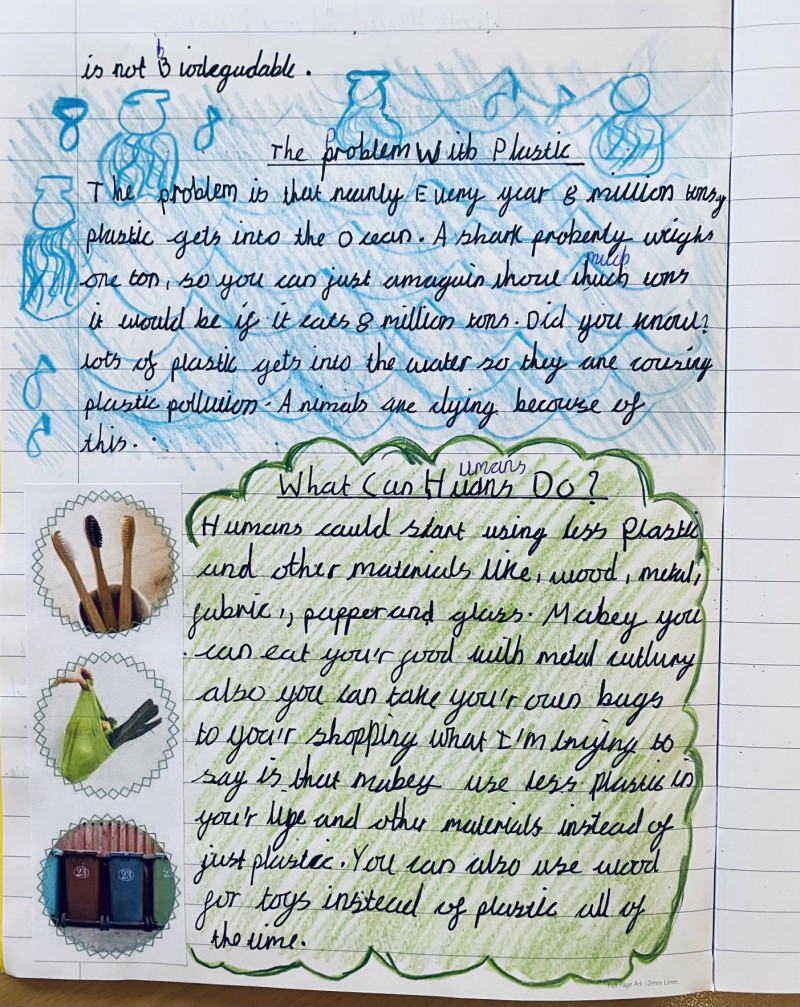 is not biodegudable.
The problem With Plastic
The problem is that nearly Every year 8 million tons of
plastic gets into the Ocean. A shark proberly weighs
one ton, so you can just amagain how much tons
it would be if it eats 8 million tons. Did you know?
lots of plastic gets into the water so they are cousing
plastic pollution. Animals are dying becouse of
this.
What Can Humans Do?
Humans could start using less Plastic
and other materials like, wood, metal,
fabric, papper and glass. Mabey you
can eat you'r food with metal cutlury
also you can take you'r own bags
to you'r shopping what I'm trying to
say is that mabey use less plastic in
you'r life and other materials instead of
just plastic. You can also use wood
for toys instead of plastic all of
the time.
23
23
Full Page A4 12mm Lines